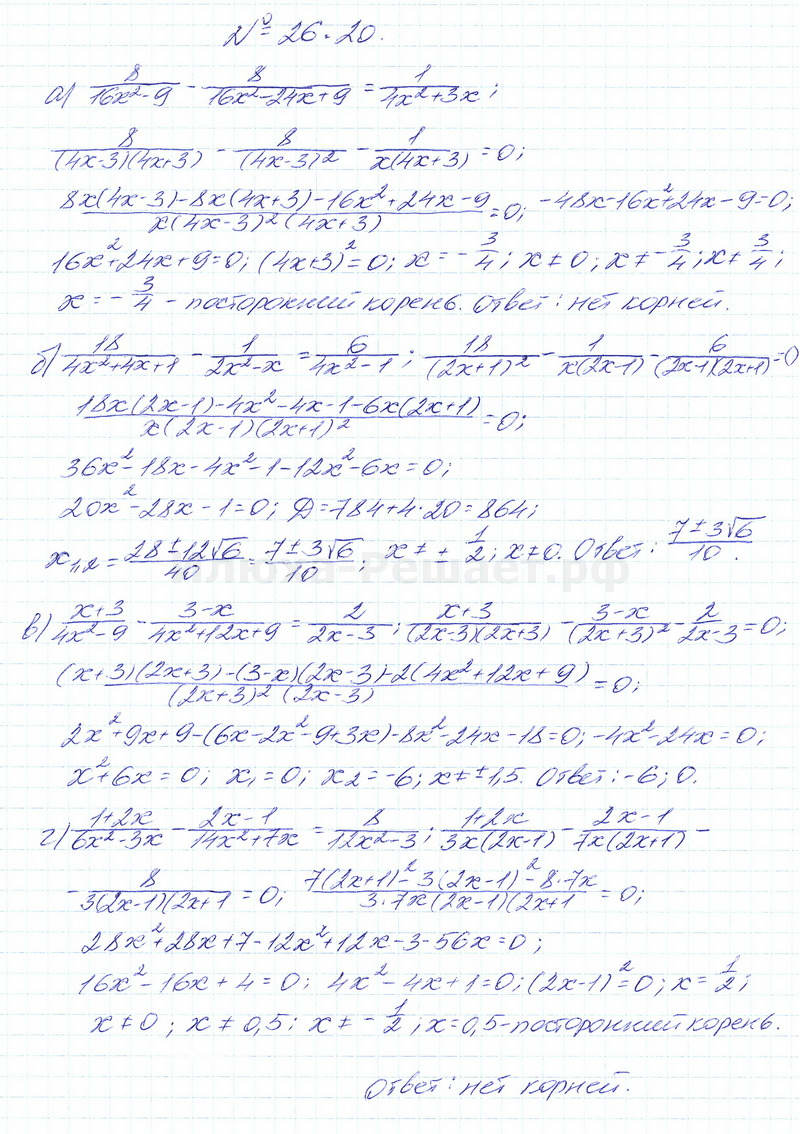 № 26.20.
а) 8/(16x²-9) - 8/(16x²-24x+9) = 1/(4x²+3x);
8/((4x-3)(4x+3)) - 8/(4x-3)² - 1/(x(4x+3)) = 0;
(8x(4x-3)-8x(4x+3)-16x²+24x-9)/(x(4x-3)²(4x+3)) = 0; -48x-16x²+24x-9=0;
16x²+24x+9=0; (4x+3)²=0; x = -3/4; x≠0; x≠-3/4; x≠3/4;
x = -3/4 - посторонний корень. Ответ: нет корней.
б) 18/(4x²+4x+1) - 1/(2x²-x) = 6/(4x²-1); 18/(2x+1)² - 1/(x(2x-1)) - 6/((2x-1)(2x+1)) = 0
(18x(2x-1)-4x²-4x-1-6x(2x+1))/(x(2x-1)(2x+1)²) = 0;
36x²-18x-4x²-1-12x²-6x=0;
20x²-28x-1=0; Д=784+4·20=864;
x₁,₂ = (28±12√6)/40 = (7±3√6)/10; x≠±1/2; x≠0. Ответ: (7±3√6)/10.
алюха-Решает.рф
в) (x+3)/(4x²-9) - (3-x)/(4x²+12x+9) = 2/(2x-3); (x+3)/((2x-3)(2x+3)) - (3-x)/(2x+3)² - 2/(2x-3) = 0;
((x+3)(2x+3)-(3-x)(2x-3)-2(4x²+12x+9))/((2x+3)²(2x-3)) = 0;
2x²+9x+9-(6x-2x²-9+3x)-8x²-24x-18=0; -4x²-24x=0;
x²+6x=0; x₁=0; x₂=-6; x≠±1,5. Ответ: -6; 0.
г) (1+2x)/(6x²-3x) - (2x-1)/(14x²+7x) = 8/(12x²-3); (1+2x)/(3x(2x-1)) - (2x-1)/(7x(2x+1)) -
- 8/(3(2x-1)(2x+1) = 0; (7(2x+1)²-3(2x-1)²-8·7x)/(3·7x(2x-1)(2x+1) = 0;
28x²+28x+7-12x²+12x-3-56x=0;
16x²-16x+4=0; 4x²-4x+1=0; (2x-1)²=0; x=1/2;
x≠0; x≠0,5; x≠-1/2; x=0,5-посторонний корень.
Ответ: нет корней.